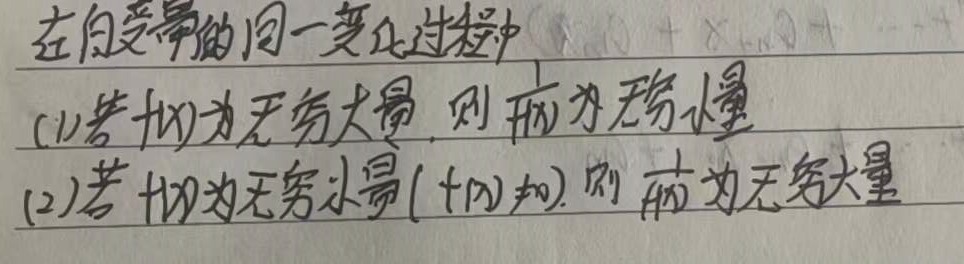 在自变量的同一变化过程中
(1)若f(x)为无穷大量,则1/f(x)为无穷小量
(2)若f(x)为无穷小量(f(x)≠0).则1/f(x)为无穷大量